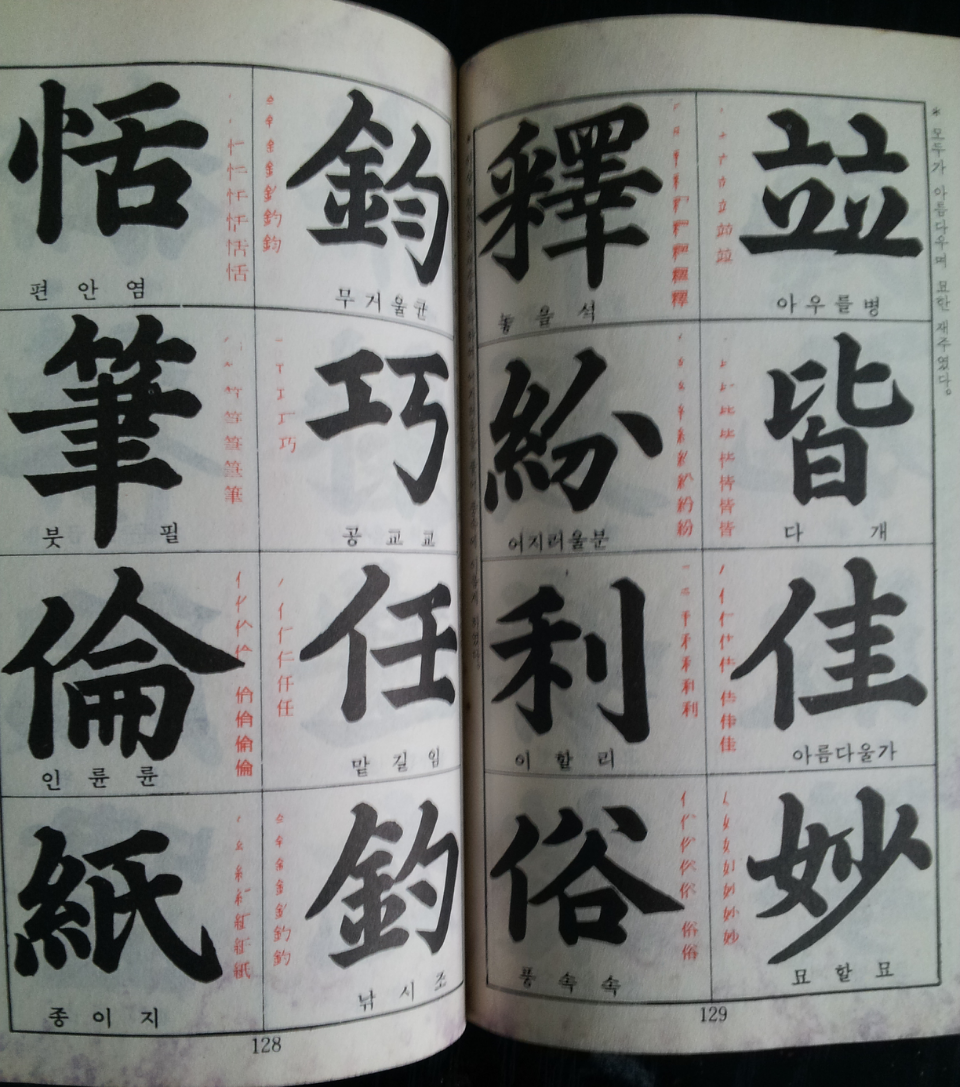 恬
편 안 염
筆
붓 필
倫
인 륜 륜
紙
종 이 지
鈞
무거울균
巧
공 교 교
任
맡 길 임
釣
낚 시 조
128
釋
놓 을 석
紛
어지러울분
利
이 할 리
俗
풍 속 속
竝
아우를병
皆
다 개
佳
아름다울가
妙
묘 할 묘
* 모두가 아름다우며 묘한 재주였다。
129